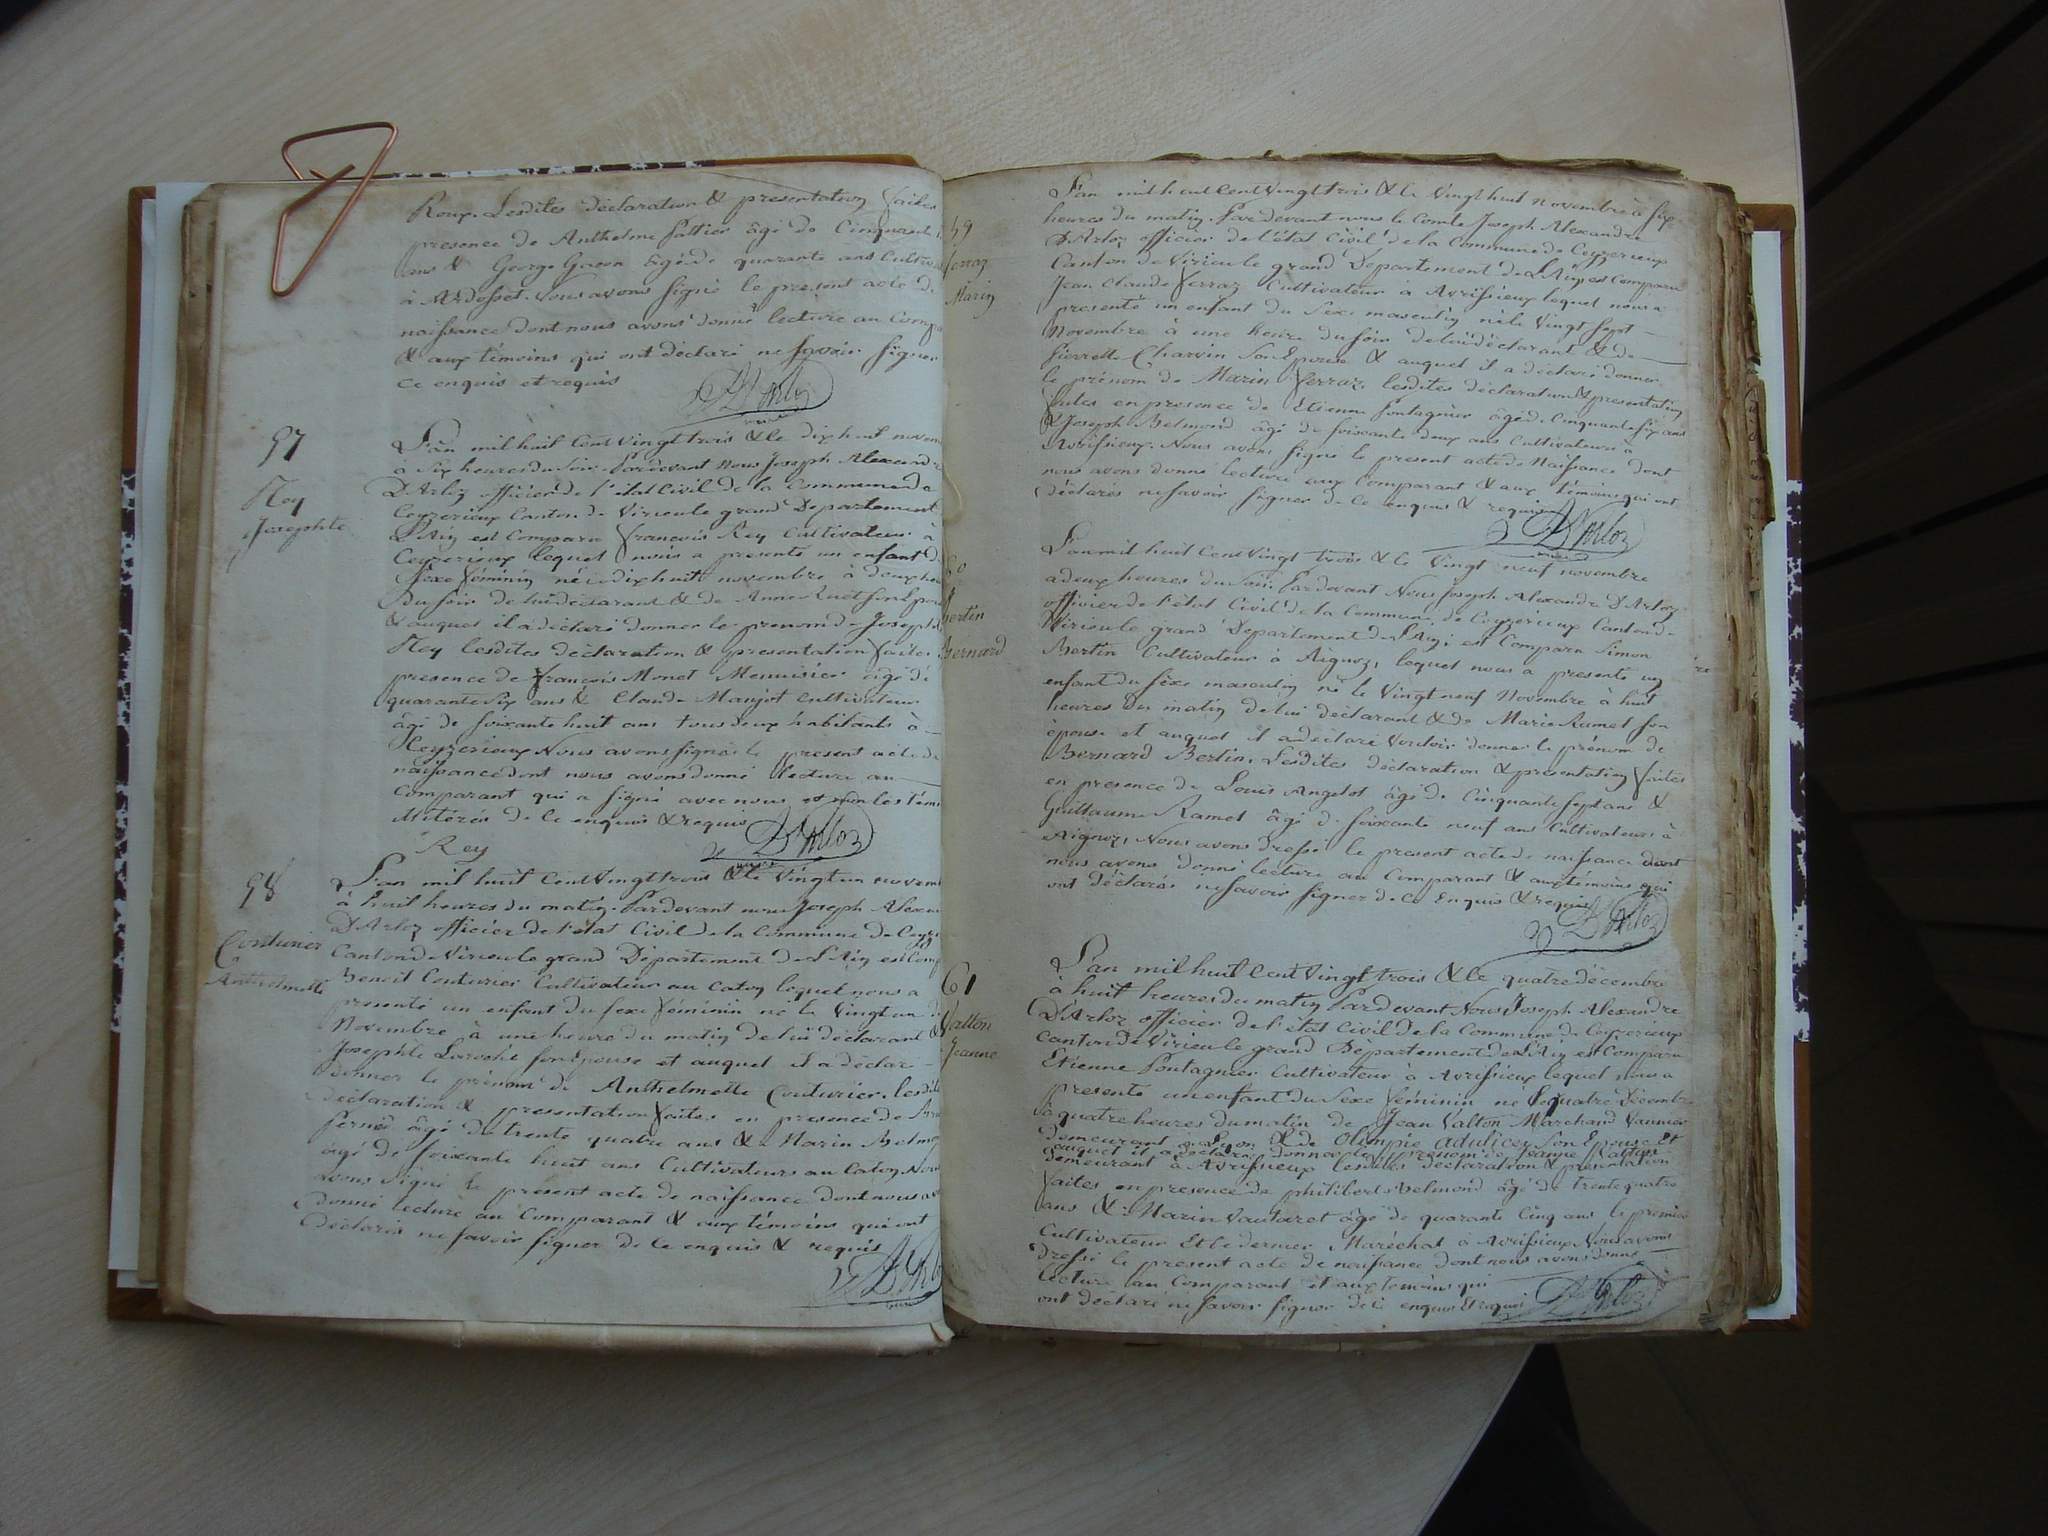 Roux. Lesdites déclaration & presentation faites
presence de Anthelme Pattier âgé de Cinquante
ans & George Gacon âgé de quarante ans Cultiv
à Ardosset. Nous avons signé le present acte de
naissance dont nous avons donné lecture au Comp
& aux témoins qui ont déclaré ne savoir signer
Ce enquis et requis
D'Arloz
57
Rey
Josephte
L'an mil huit Cent vingt trois & le dix huit novem
à six heures du soir. Pardevant Nous Joseph Alexandre
D'Arloz officier de l'état Civil de la Commune de
Ceyzerieux Canton de Virieu le grand Departement
L'Ain est Comparu francois Rey Cultivateur à
Ceyzerieux lequel nous a presenté un enfant du
Sexe féminin né le dix huit novembre à deux heu
du soir de lui déclarant & de Anne Ruet son Epou
& auquel il a déclaré donner le prenom de Joseph
Rey lesdites déclaration & presentation faites
presence de françois Monet Menuisier âgé de
quarante six ans & Claude Manjot Cultivateur
âgé de soixante huit ans tous deux habitants à
Ceyzerieux Nous avons signé le present acte de
naissance dont nous avons donné lecture au
Comparant qui a signé avec nous et non les tém
illitérés de ce enquis & requis
D'Arloz
Rey
58
Couturier
Anthelmette
L'an mil huit Cent Vingt trois & le Vingt un novem
à huit heures du matin. Pardevant nous Joseph Alexan
D'Arloz officier de l'état Civil de la Commune de Ceyz
Canton de Virieu le grand Département de L'Ain est Comp
Benoit Couturier Cultivateur au Caton lequel nous a
presenté un enfant du sexe féminin né le Vingt un
Novembre à une heure du matin de lui déclarant &
Josephte Laroche son épouse et auquel il a déclar
donner le prénom de Anthelmette Couturier. lesdite
déclaration & presentation faites en presence de
âgé de trente quatre ans & Marin Belmo
âgé de soixante huit ans Cultivateurs au Caton Nous
avons signé le present acte de naissance dont nous av
donné lecture au Comparant & aux témoins qui ont
Déclarés ne savoir signer de Ce enquis & requis
D'Arloz
59
ferraz
Marin
L'an mil huit Cent Vingt trois & le Vingt huit Novembre à six
heures du matin. Pardevant nous le Comte Joseph Alexandre
D'Arloz officier de l'état Civil de la Commune de Ceyzerieux
Canton de Virieu le grand Département de L'Ain est Comparu
Jean Claude ferraz Cultivateur à Avrissieux lequel nous a
presenté un enfant du Sexe masculin né le Vingt sept
Novembre à une heure du soir de lui déclarant & de
Pierrette Charvin Son Epouse & auquel il a déclaré donner
le prénom de Marin ferraz, lesdites déclaration & presentation
faites en presence de Etienne Pontagnier âgé de Cinquante six ans
& Joseph Belmond âgé de soixante deux ans Cultivateurs à
Avrissieux. Nous avons signé le present acte de Naissance dont
nous avons donné lecture aux Comparant & aux témoins qui ont
déclarés ne savoir signer de Ce enquis & requis
D'Arloz
60
Bertin
Bernard
L'an mil huit Cent Vingt trois & le Vingt neuf novembre
à deux heures du Soir. Pardevant Nous Joseph Alexandre D'Arloz
officier de l'état Civil de la Commune de Ceyzerieux Canton de
Virieu le grand Département de L'Ain; est Comparu Simon
Bertin Cultivateur à Aignoz, lequel nous a presenté un
enfant du séxe masculin né le Vingt neuf Novembre à huit
heures du matin de lui déclarant & de Marie Ramel son
épouse et auquel il a déclaré Vouloir donner le prénom de
Bernard Bertin. Lesdites déclaration & presentation faites
en presence de Louis Angelot âgé de Cinquante sept ans &
Guillaume Ramel âgé de soixante neuf ans Cultivateurs à
Aignoz, Nous avons dressé le present acte de naissance dont
nous avons donné lecture au Comparant & aux témoins qui
ont déclarés ne savoir signer de Ce Enquis & requis
D'Arloz
61
Valton
Jeanne
L'an mil huit Cent Vingt trois & le quatre décembre
à huit heures du matin Pardevant Nous Joseph Alexandre
D'Arloz officier de l'état Civil de la Commune de Ceyzerieux
Canton de Virieu le grand Département de L'Ain est Comparu
Etienne Pontagnier Cultivateur à Avrissieux lequel nous a
presenté un enfant du Sexe féminin né le quatre Décembre
à quatre heures du matin de Jean Valton Marchand Vannier
demeurant à Lyon & de Olimpie Son Epouse Et
auquel il a déclaré donner le prénom de Jeanne Valton
demeurant à Avrissieux lesdites déclaration & presentation
faites en presence de philibert Belmond âgé de trente quatre
ans & Marin Vautaret âgé de quarante Cinq ans le premier
Cultivateur Et le dernier Maréchal à Avrissieux Nous avons
dressé le present acte de naissance dont nous avons donné
lecture au Comparant et aux temoins qui
ont déclaré ne savoir signer de Ce enquis Et requis
D'Arloz